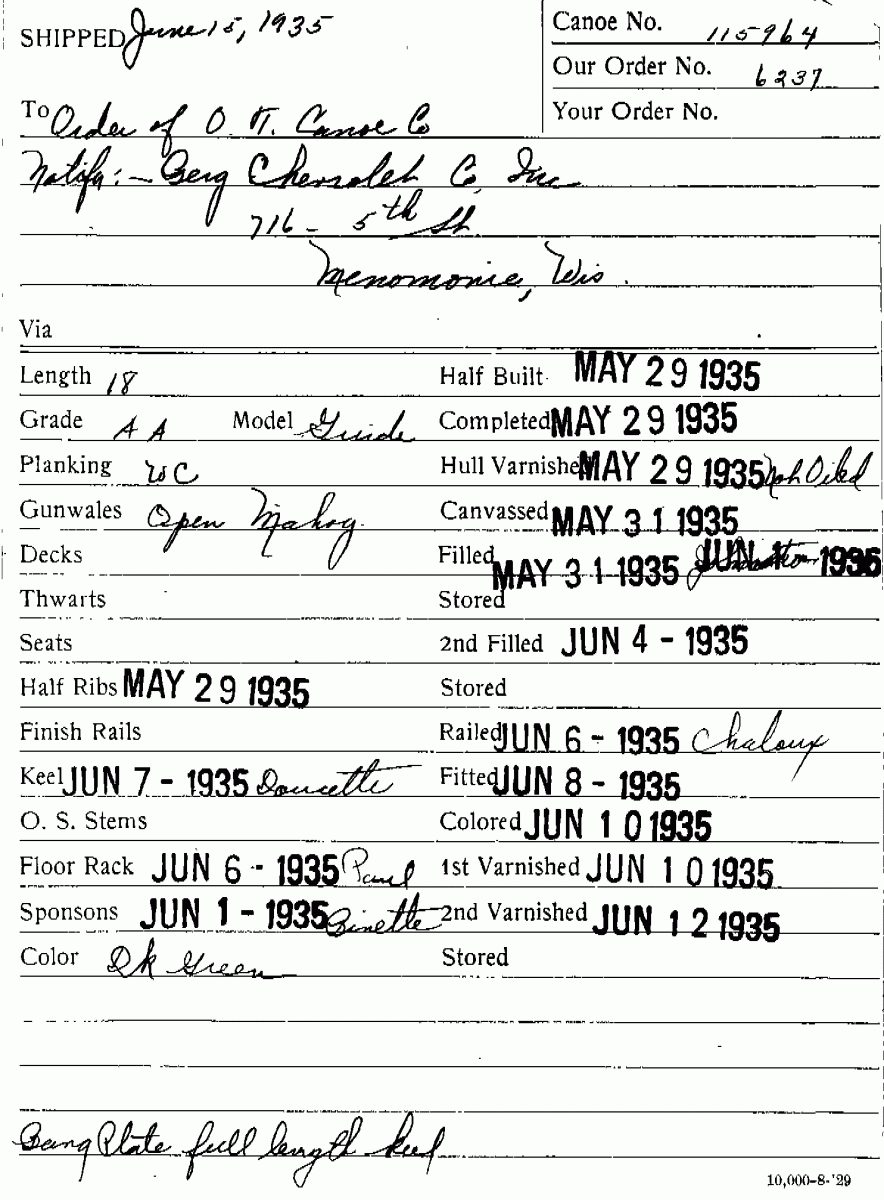 SHIPPED June 15, 1935
Canoe No. 115964
Our Order No. 6237
Your Order No.
To Order of O. T. Canoe Co
Notify:- Berg Chevrolet Co, Inc
716 - 5th St.
Menomonie, Wis.
Via
Length 18 Half Built MAY 29 1935
Grade A A Model Guide Completed MAY 29 1935
Planking WC Hull Varnished MAY 29 1935 Not Oiled
Gunwales Open Mahog. Canvassed MAY 31 1935
Decks Filled MAY 31 1935 JUN 1 1935
Thwarts Stored
Seats 2nd Filled JUN 4 - 1935
Half Ribs MAY 29 1935 Stored
Finish Rails Railed JUN 6 - 1935 Chaloux
Keel JUN 7 - 1935 Doucette Fitted JUN 8 - 1935
O. S. Stems Colored JUN 10 1935
Floor Rack JUN 6 - 1935 Paul 1st Varnished JUN 10 1935
Sponsons JUN 1 - 1935 Binette 2nd Varnished JUN 12 1935
Color Dk Green Stored
Bang Plate full length keel
10,000-8-'29